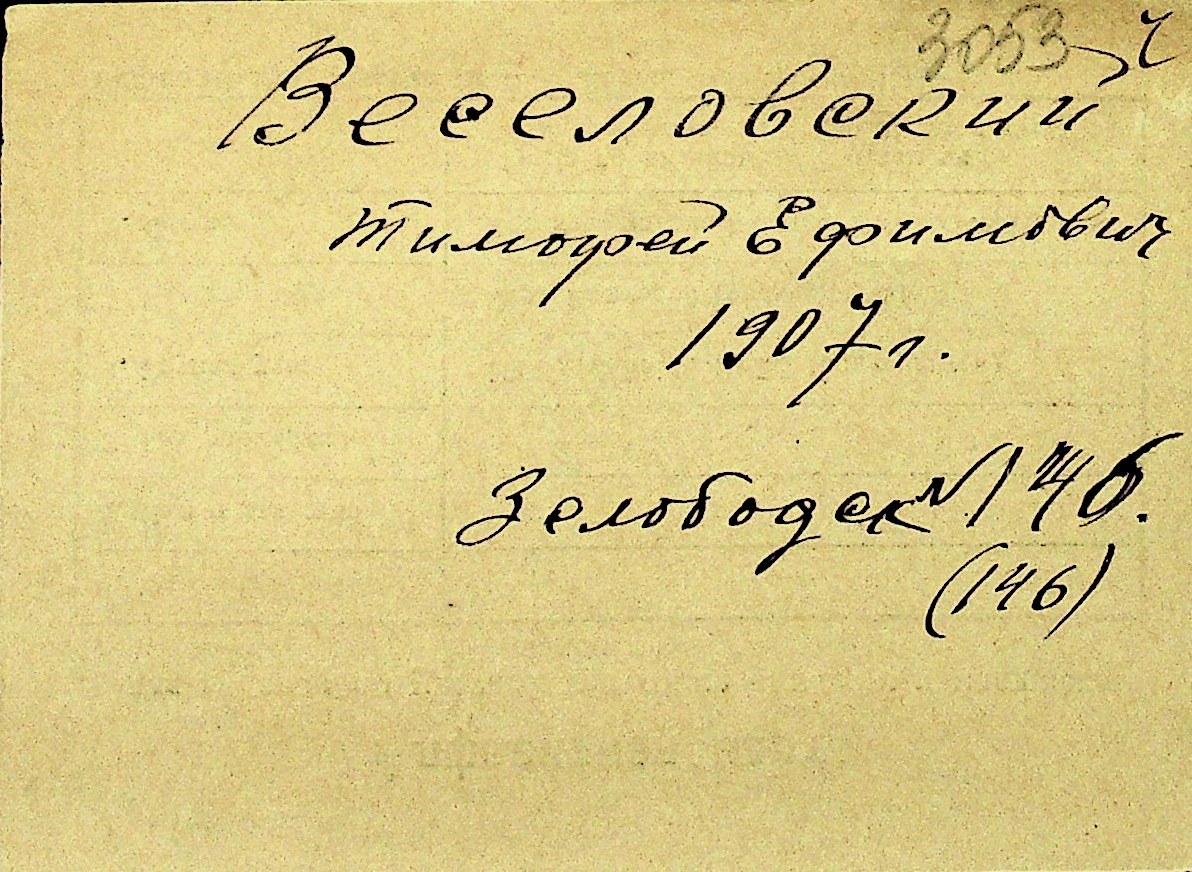 3053
Веселовский
Тимофей Ефимович
1907 г.
Зелободск № 146.
(146)